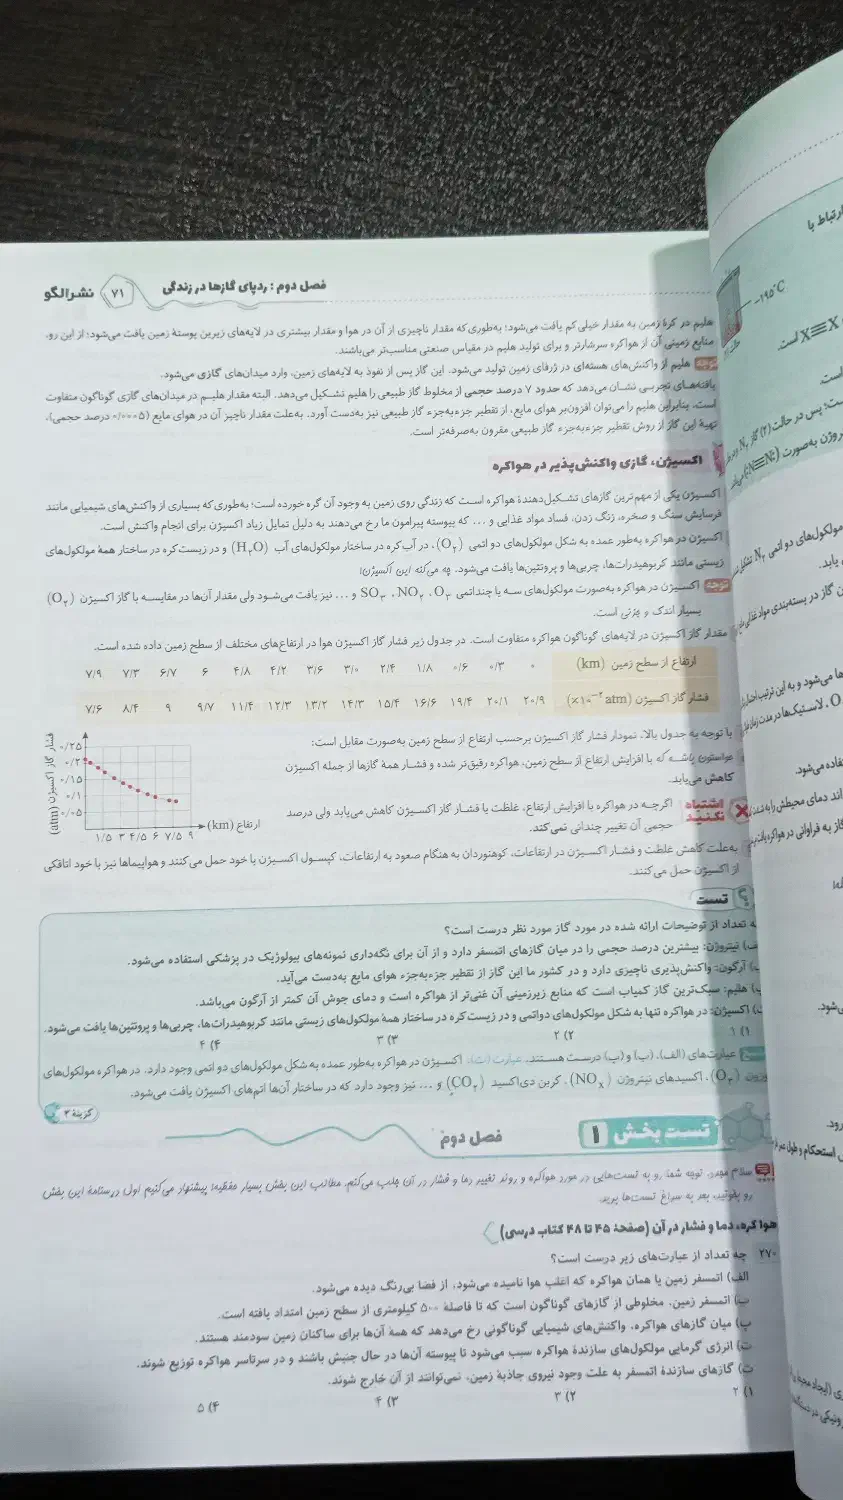 فصل دوم : ردپای گازها در زندگی ۷۱ نشرالگو
هلیم در کرهٔ زمین به مقدار خیلی کم یافت می‌شود؛ به‌طوری‌که مقدار ناچیزی از آن در هوا و مقدار بیشتری در لایه‌های زیرین پوستهٔ زمین یافت می‌شود؛ از این رو،
منابع زمینی آن از هواکره سرشارتر و برای تولید هلیم در مقیاس صنعتی مناسب‌تر می‌باشند.
توجه هلیم از واکنش‌های هسته‌ای در ژرفای زمین تولید می‌شود. این گاز پس از نفوذ به لایه‌های زمین، وارد میدان‌های گازی می‌شود.
یافته‌های تجربی نشان می‌دهد که حدود ۷ درصد حجمی از مخلوط گاز طبیعی را هلیم تشکیل می‌دهد. البته مقدار هلیم در میدان‌های گازی گوناگون متفاوت
است. بنابراین هلیم را می‌توان افزون‌بر هوای مایع، از تقطیر جزءبه‌جزء گاز طبیعی نیز به‌دست آورد. به‌علت مقدار ناچیز آن در هوای مایع (۰/۰۰۰۵ درصد حجمی)،
تهیهٔ این گاز از روش تقطیر جزءبه‌جزء گاز طبیعی مقرون به‌صرفه‌تر است.
اکسیژن، گازی واکنش‌پذیر در هواکره
اکسیژن یکی از مهم‌ترین گازهای تشکیل‌دهندهٔ هواکره است که زندگی روی زمین به وجود آن گره خورده است؛ به‌طوری‌که بسیاری از واکنش‌های شیمیایی مانند
فرسایش سنگ و صخره، زنگ زدن، فساد مواد غذایی و ... که پیوسته پیرامون ما رخ می‌دهند به دلیل تمایل زیاد اکسیژن برای انجام واکنش است.
اکسیژن در هواکره به‌طور عمده به شکل مولکول‌های دو اتمی (O₂)، در آب‌کره در ساختار مولکول‌های آب (H₂O) و در زیست‌کره در ساختار همهٔ مولکول‌های
زیستی مانند کربوهیدرات‌ها، چربی‌ها و پروتئین‌ها یافت می‌شود. چه می‌کنه این اکسیژن!
توجه اکسیژن در هواکره به‌صورت مولکول‌های سه یا چنداتمی O₃، NO₂، SO₃ و ... نیز یافت می‌شود ولی مقدار آن‌ها در مقایسه با گاز اکسیژن (O₂)
بسیار اندک و جزئی است.
مقدار گاز اکسیژن در لایه‌های گوناگون هواکره متفاوت است. در جدول زیر فشار گاز اکسیژن هوا در ارتفاع‌های مختلف از سطح زمین داده شده است.
ارتفاع از سطح زمین (km) ۰ ۰/۳ ۰/۶ ۱/۸ ۲/۴ ۳/۰ ۳/۶ ۴/۲ ۴/۸ ۶ ۶/۷ ۷/۳ ۷/۹
فشار گاز اکسیژن (×۱۰⁻² atm) ۲۰/۹ ۲۰/۱ ۱۹/۴ ۱۶/۶ ۱۵/۴ ۱۴/۳ ۱۳/۲ ۱۲/۳ ۱۱/۴ ۹/۷ ۹ ۸/۴ ۷/۶
با توجه به جدول بالا، نمودار فشار گاز اکسیژن برحسب ارتفاع از سطح زمین به‌صورت مقابل است:
حواستون باشه که با افزایش ارتفاع از سطح زمین، هواکره رقیق‌تر شده و فشار همهٔ گازها از جمله اکسیژن
کاهش می‌یابد.
اشتباه نکنید اگرچه در هواکره با افزایش ارتفاع، غلظت یا فشار گاز اکسیژن کاهش می‌یابد ولی درصد
حجمی آن تغییر چندانی نمی‌کند.
فشار گاز اکسیژن (atm)
۰/۲۵
۰/۲
۰/۱۵
۰/۱
۰/۰۵
۱/۵ ۳ ۴/۵ ۶ ۷/۵ ۹
ارتفاع (km)
به‌علت کاهش غلظت و فشار اکسیژن در ارتفاعات، کوهنوردان به هنگام صعود به ارتفاعات، کپسول اکسیژن با خود حمل می‌کنند و هواپیماها نیز با خود اتاقکی
از اکسیژن حمل می‌کنند.
تست
چه تعداد از توضیحات ارائه شده در مورد گاز مورد نظر درست است؟
الف) نیتروژن: بیشترین درصد حجمی را در میان گازهای اتمسفر دارد و از آن برای نگه‌داری نمونه‌های بیولوژیک در پزشکی استفاده می‌شود.
ب) آرگون: واکنش‌پذیری ناچیزی دارد و در کشور ما این گاز از تقطیر جزءبه‌جزء هوای مایع به‌دست می‌آید.
پ) هلیم: سبک‌ترین گاز کمیاب است که منابع زیرزمینی آن غنی‌تر از هواکره است و دمای جوش آن کمتر از آرگون می‌باشد.
ت) اکسیژن: در هواکره تنها به شکل مولکول‌های دواتمی و در زیست‌کره در ساختار همهٔ مولکول‌های زیستی مانند کربوهیدرات‌ها، چربی‌ها و پروتئین‌ها یافت می‌شود.
۱) ۱ ۲) ۲ ۳) ۳ ۴) ۴
پاسخ عبارت‌های (الف)، (ب) و (پ) درست هستند. عبارت (ت): اکسیژن در هواکره به‌طور عمده به شکل مولکول‌های دو اتمی وجود دارد. در هواکره مولکول‌های
اوزون (O₃)، اکسیدهای نیتروژن (NOₓ)، کربن دی‌اکسید (CO₂) و ... نیز وجود دارد که در ساختار آن‌ها اتم‌های اکسیژن یافت می‌شود.
گزینهٔ ۳
تست بخش ۱ فصل دوم
سلام مجدد. توجه شما رو به تست‌هایی در مورد هواکره و روند تغییر دما و فشار در آن جلب می‌کنم. مطالب این بخش بسیار حفظیه! پیشنهاد می‌کنیم اول درسنامهٔ این بخش
رو بخونید، بعد به سراغ تست‌ها برید.
هواکره، دما و فشار در آن (صفحهٔ ۴۵ تا ۴۸ کتاب درسی)
۲۷۰ چه تعداد از عبارت‌های زیر درست است؟
الف) اتمسفر زمین یا همان هواکره که اغلب هوا نامیده می‌شود، از فضا بی‌رنگ دیده می‌شود.
ب) اتمسفر زمین، مخلوطی از گازهای گوناگون است که تا فاصلهٔ ۵۰۰ کیلومتری از سطح زمین امتداد یافته است.
پ) میان گازهای هواکره، واکنش‌های شیمیایی گوناگونی رخ می‌دهد که همهٔ آن‌ها برای ساکنان زمین سودمند هستند.
ت) انرژی گرمایی مولکول‌های سازندهٔ هواکره سبب می‌شود تا پیوسته آن‌ها در حال جنبش باشند و در سرتاسر هواکره توزیع شوند.
ث) گازهای سازندهٔ اتمسفر به علت وجود نیروی جاذبهٔ زمین، نمی‌توانند از آن خارج شوند.
۱) ۲ ۲) ۳ ۳) ۴ ۴) ۵
ارتباط با
−۱۹۵°C
X≡X است.
است.